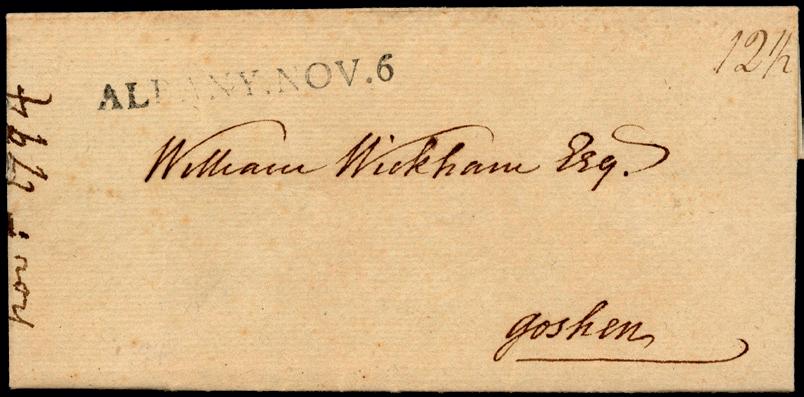 ALBANY.NOV.6
12½
William Wickham Esq.
goshen
nov: 1794